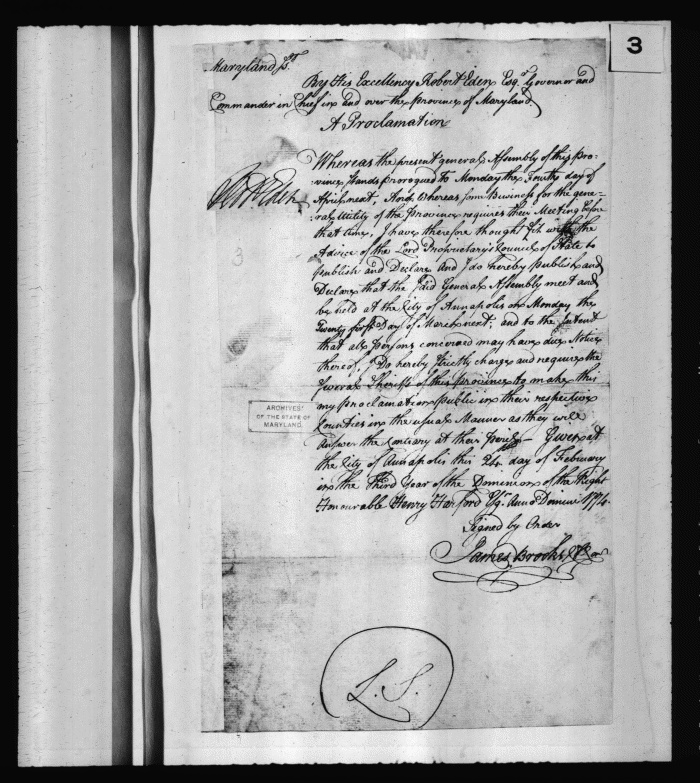 3
Maryland Ss.t
By His Excellency Robert Eden Esq.r Governor and
Commander in Chief in and over the province of Maryland
A Proclamation
Whereas the present general Assembly of this pro-
vince stands prorogued to Monday the Fourth day of
April next, And, Whereas some Business for the gene-
ral Utility of the Province requires their Meeting before
that time, I have therefore thought fit with the
Advice of the Lord Proprietary's Council of State to
publish and Declare And I do hereby publish and
Declare that the said General Assembly meet and
be held at the City of Annapolis on Monday the
Twenty first Day of March next; and to the Intent
that all persons concerned may have due Notice
thereof, I Do hereby strictly charge and require the
several Sheriffs of this province to make this
my proclamation public in their respective
Counties in the usual Manner as they will
answer the contrary at their peril, — Given at
the City of Annapolis this 24. day of February
in the Third Year of the Dominion of the Right
Honourable Henry Harford Esq.r Anno Domini 1774
Signed by Order
James Brooks
Robt Eden
3
ARCHIVES
OF THE STATE OF
MARYLAND
L. S.